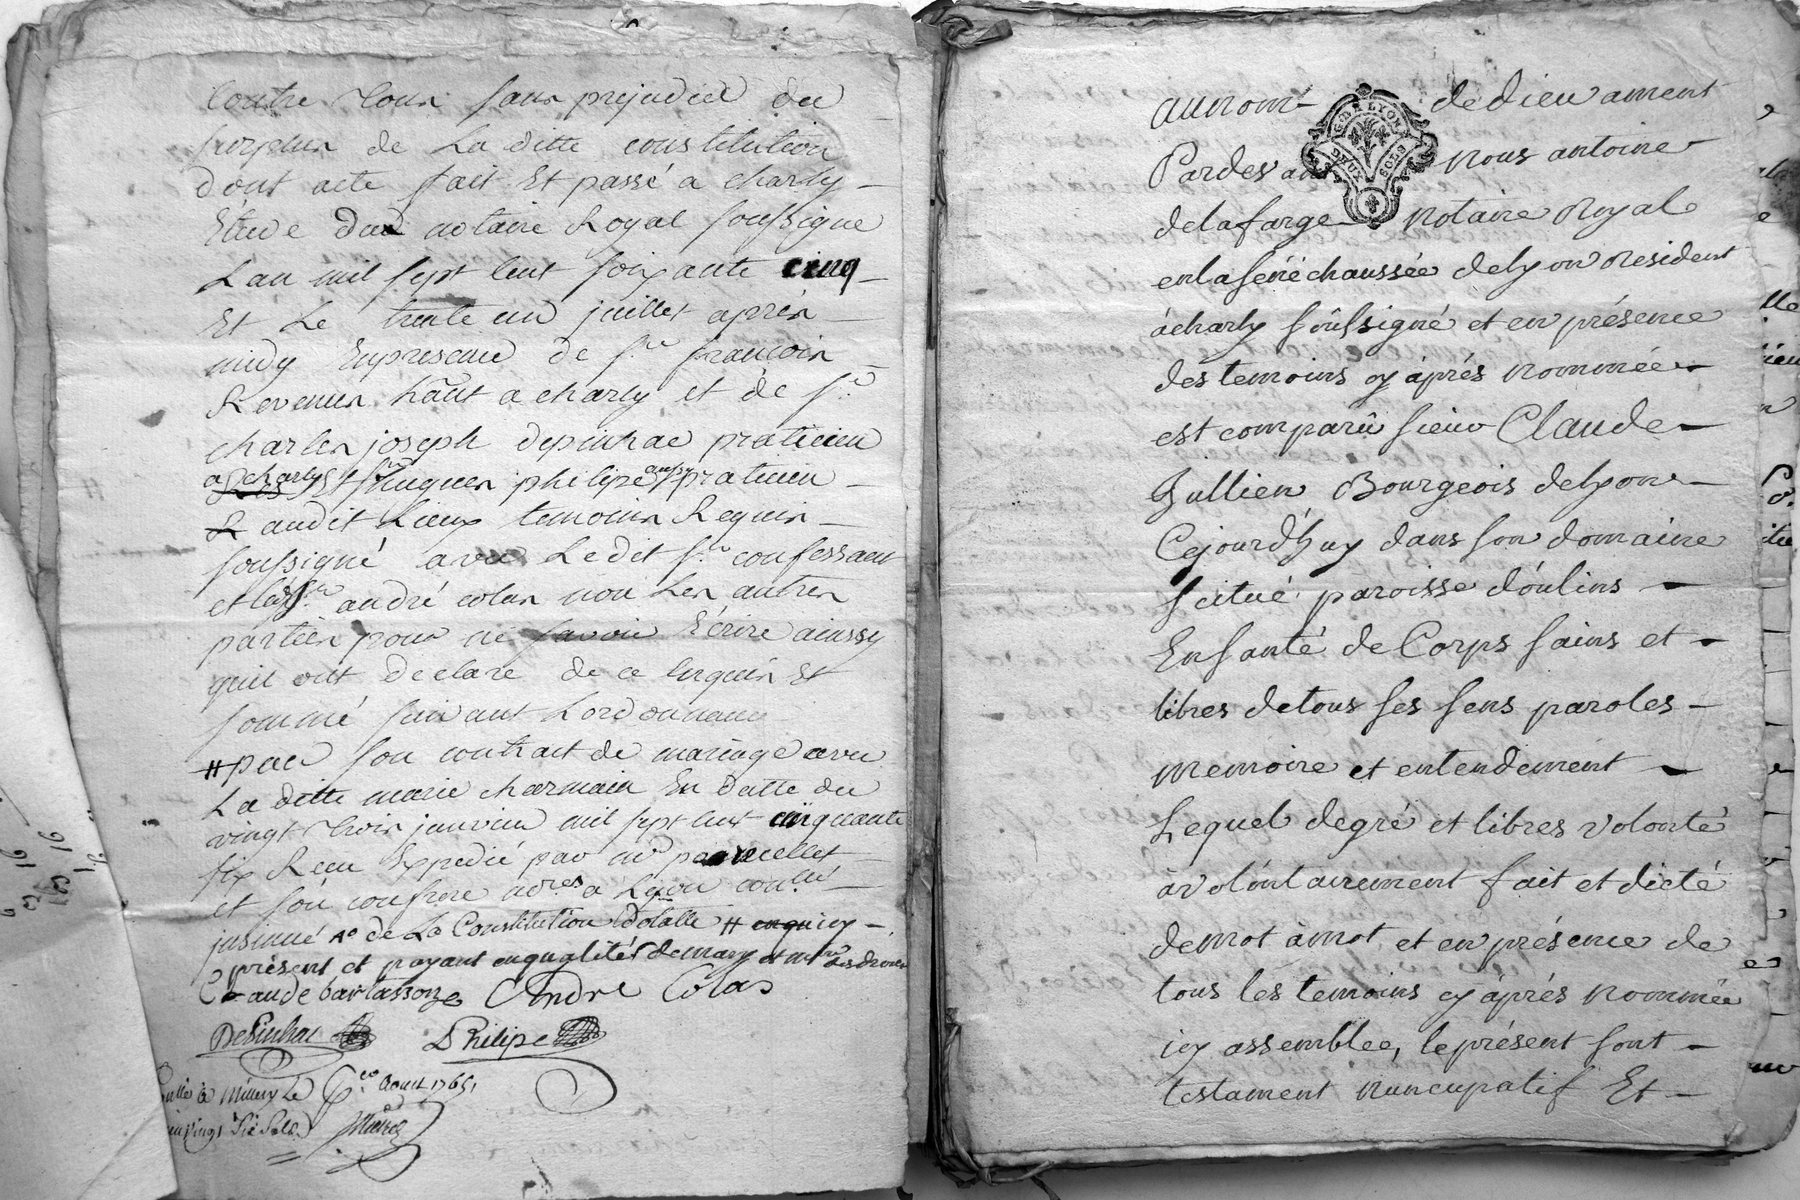 Contre tour sans prejudice du
surplus de La ditte constitution
dont acte fait Et passé a charly
Etude dud notaire Royal soussigne
Lan mil sept cent soixante cinq
Et Le trente un juillet après
midy En presence de sr françois
Revenus haut a charly et de sr
charles joseph depinhac praticien
a charly Et sr hugues philipe aussy praticien
audit Lieux temoins Requis
soussigné avec Le dit sr confessant
et led sr andré colas non Les autres
parties pour ne savoir Ecrire ainssy
quil ont declare de ce Enquis Et
sommé suivant Lordonnance
# par son contract de mariage avec
La ditte marie charmain En datte du
vingt trois janvier mil sept cent cinquante
six Recu Expedié par me
et son confrere nores a Lyon
jnsinué de La Constitution dotalle # icy
présent et payant en qualités de mary et mtre des droits
Claude bartasson André Colas
DePinhac Philipe
à Millery Le Aout 1765
vingt sols
16
16
au nom de dieu ament
G. D. LYON
DEUX SOLS
Pardevant Nous antoine
delafarge Notaire Royal
en la sénéchaussée de lyon résident
à charly soûssigné et en présence
des temoins cy âprés nommée
est comparû sieur Claude
Jullien Bourgeois de lyon
Cejourd'huy dans son domaine
scitué paroisse d'oulins
En santé de Corps sains et
libres de tous ses sens paroles
memoire et entendement
Lequel de gré et libres volonté
à volontairement fait et dicté
de mot à mot et en présence de
tous les temoins cy âprés nommée
icy assemblée, le présent sont
testament nuncupatif Et